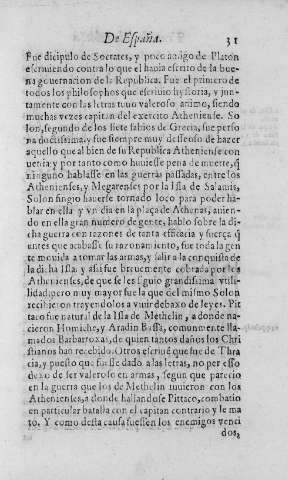 De España. 31
Fue dicipulo de Socrates, y poco amigo de Platon
escriuiendo contra lo que el hauia escrito de la bue
na gouernacion de la Republica. Fue el primero de
todos los philosophos que escriuio hystoria, y jun
tamente con las letras tuuo valeroso animo, siendo
muchas vezes capitan del exercito Atheniense. So
lon, segundo de los siete sabios de Grecia, fue perso
na doctissima, y fue siempre muy desseoso de hazer
aquello que al bien de su Republica Atheniense con
uenia: y por tanto como huuiesse pena de muerte, q̃
ninguno hablasse en las guerras passadas, entre los
Athenienses, y Megarenses por la Isla de Salamis,
Solon fingio hauerse tornado loco para poder ha-
blar en ella y vn dia en la plaça de Athenas, auien-
do en ella gran numero de gente, hablo sobre la di-
cha guerra con razones de tanta efficacia y fuerça q̃
antes que acabasse su razonamiento, fue toda la gen
te mouida a tomar las armas, y salir a la conquista de
la dicha Isla y assi fue breuemente cobrada por los
Athenienses, de que se les siguio grandissima vtili-
lidad, pero muy mayor fue la que del mismo Solon
recibieron trayendolos a viuir debaxo de leyes. Pit
taco fue natural de la Isla de Methelin, a donde na-
cieron Homiche, y Aradin Bassà, comunmente lla-
mados Barbarroxas, de quien tantos daños los Chri
stianos han recebido. Otros escriuẽ que fue de Thra
cia, y puesto que fuesse dado a las letras, no por esso
dexo de ser valeroso en armas, segun que parecio
en la guerra que los de Methelin tuuieron con los
Athenienses, a donde hallandose Pittaco, combatio
en particular batalla con el capitan contrario y le ma
to. Y como desta causa fuessen los enemigos venci
dos,